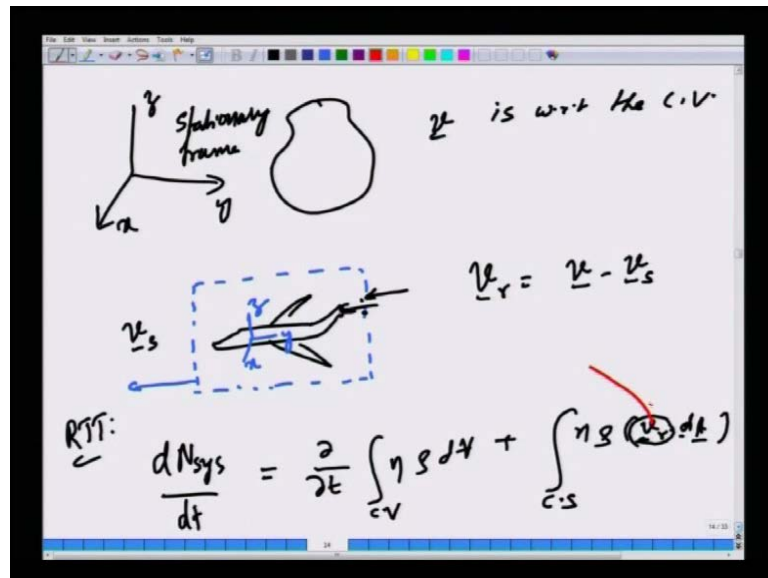 File Edit View Insert Actions Tools Help
z
Stationary
frame
y
x
v is w.r.t the C.V.
v_s
z
y
x
v_r = v - v_s
RTT:
dN_sys/dt = ∂/∂t ∫_C.V η ρ dV + ∫_C.S η ρ (v_r · dA)
24
14/33